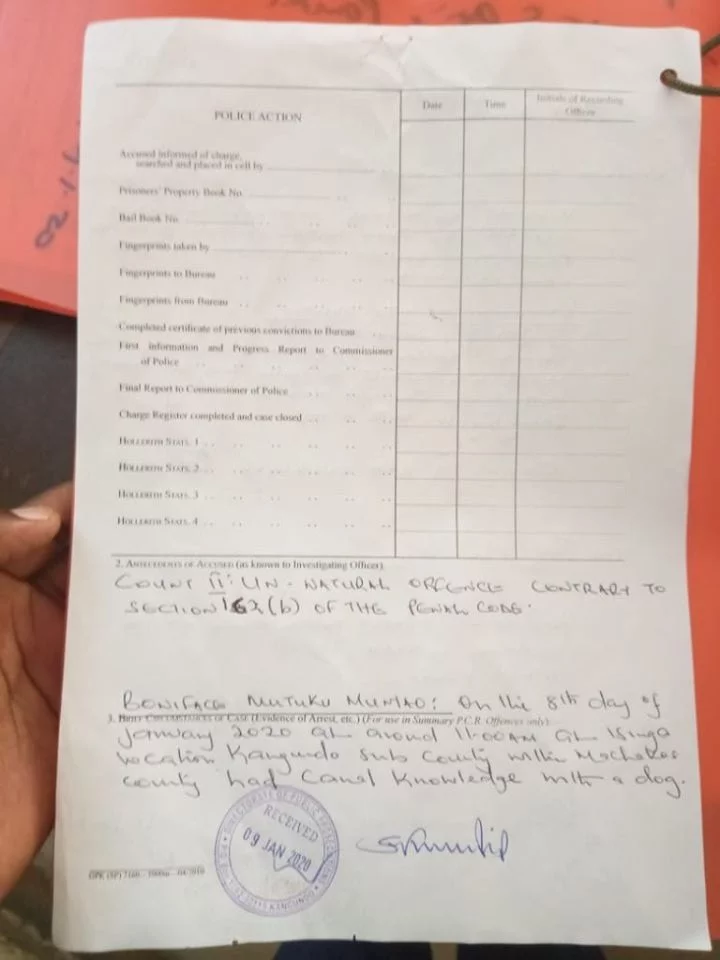 POLICE ACTION
Date
Time
Initials of Recording
Officer
Accused informed of charge,
searched and placed in cell by
Prisoners' Property Book No.
Bail Book No.
Fingerprints taken by
Fingerprints to Bureau
Fingerprints from Bureau
Completed certificate of previous convictions to Bureau
First information and Progress Report to Commissioner
of Police
Final Report to Commissioner of Police
Charge Register completed and case closed
HOLLERITH STATS. 1
HOLLERITH STATS. 2
HOLLERITH STATS. 3
HOLLERITH STATS. 4
2. ANTECEDENTS OF ACCUSED (as known to Investigating Officer).
COUNT II: UN-NATURAL OFFENCE CONTRARY TO
SECTION 162(b) OF THE PENAL CODE.
BONIFACE MUTUKU MUNYAO: On the 8th day of
3. BRIEF CIRCUMSTANCES OF CASE (Evidence of Arrest, etc.) (For use in Summary P.C.R. Offences only)
January 2020 at around 11:00AM at Isinga
location Kangundo sub county within Machakos
county had canal knowledge with a dog.
DIRECTORATE OF PUBLIC PROSECUTIONS
RECEIVED
09 JAN 2020
KANGUNDO
GPK (SP)